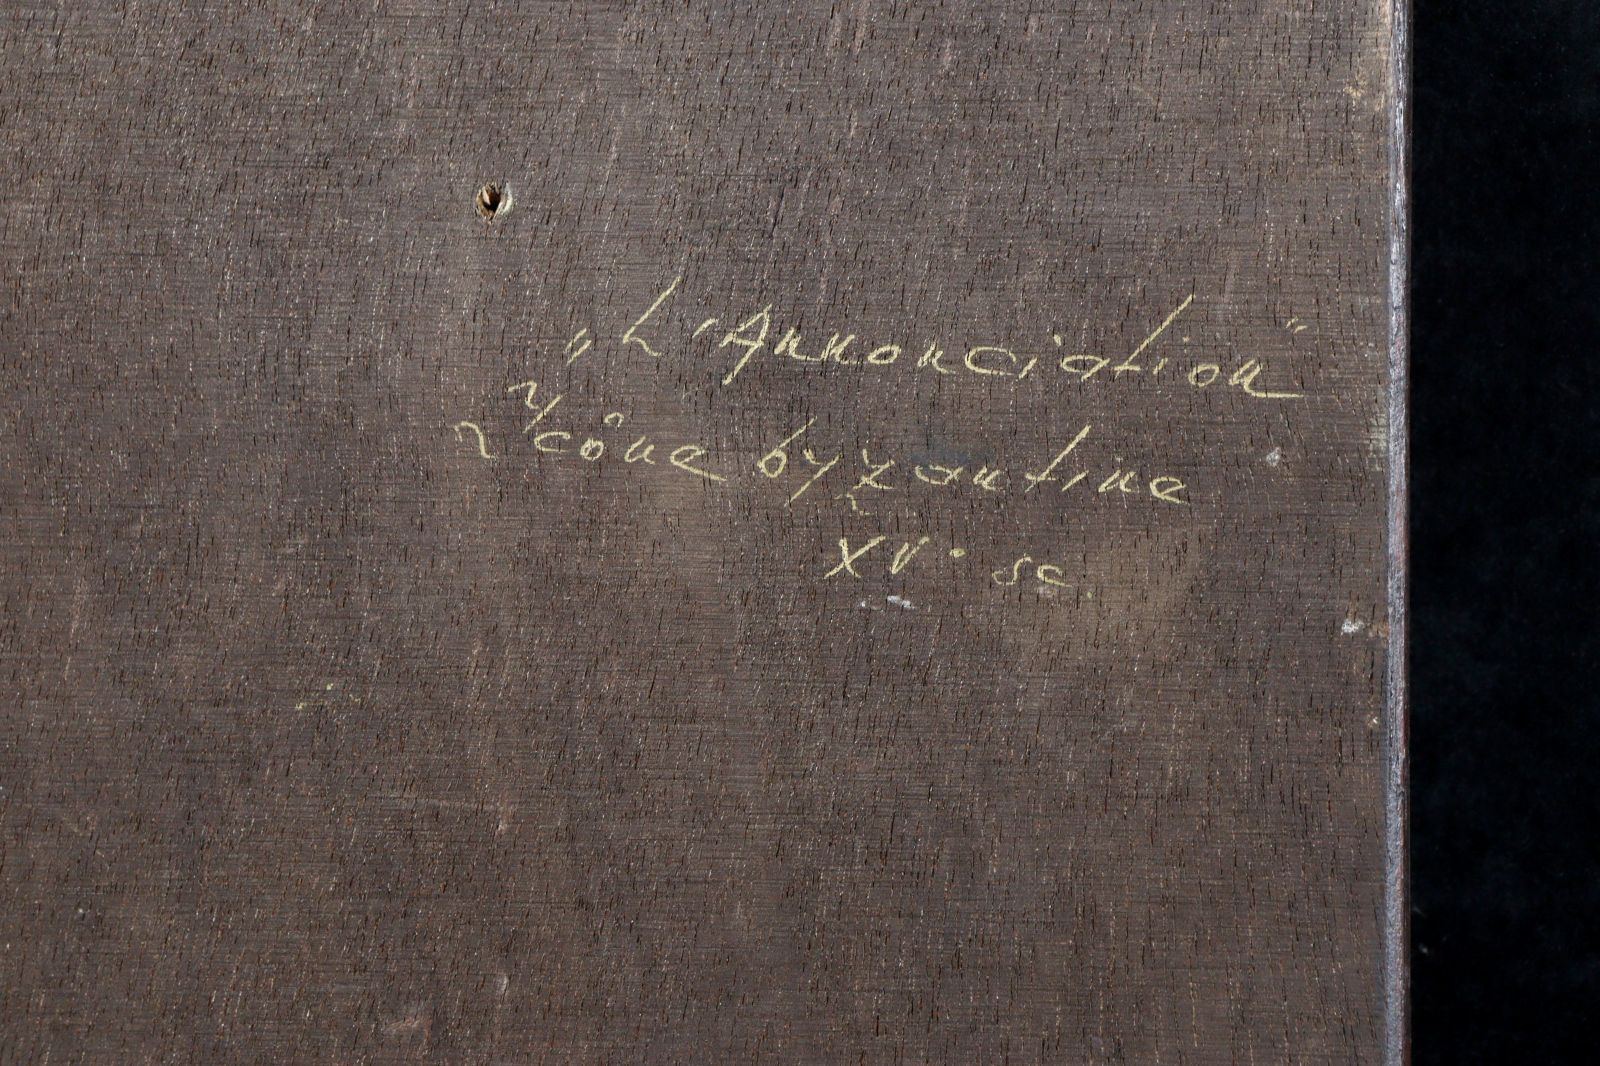 "L'Annonciation"
Icône byzantine
XV. sc.